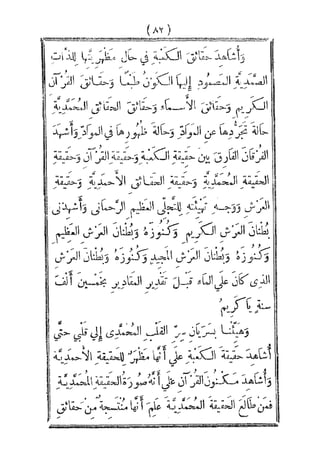 (٨٢)
وَأُشَاهِدَ حَقَائِقَ الكَعْبَةِ فِي حَالِ مَظْهَرِيَّتِهَا لِلذَّاتِ
الصَّمَدِيَّةِ المَصْمُودِ إِلَيْهَا الكَوْنُ طَبْعًا وَحَقَائِقَ القُرْآنِ
الكَرِيمِ وَحَقَائِقَ الأَسْمَاءِ وَحَقَائِقَ الحَقَائِقِ المُحَمَّدِيَّةِ
حَالَةَ تَجَرُّدِهَا عَنِ المَوَادِّ وَحَالَةَ ظُهُورِهَا فِي المَوَادِّ وَأَشْهَدَ
الفُرْقَانَ الفَارِقَ بَيْنَ حَقِيقَةِ الكَعْبَةِ وَحَقِيقَةِ القُرْآنِ وَحَقِيقَةِ
الحَقِيقَةِ المُحَمَّدِيَّةِ وَحَقِيقَةِ الحَقَائِقِ الأَحْمَدِيَّةِ وَحَقِيقَةِ
العَرْشِ وَوَجْهِ تَهَيُّئِهِ لِلتَّجَلِّي العَظِيمِ الرَّحْمَانِي وَأَشْهِدْنِي
بُطْنَانَ العَرْشِ الكَرِيمِ وَكُنُوزَهُ وَبُطْنَانَ العَرْشِ العَظِيمِ
وَكُنُوزَهُ وَبُطْنَانَ العَرْشِ المَجِيدِ وَكُنُوزَهُ وَبُطْنَانَ العَرْشِ
الَّذِى كَانَ عَلَى المَاءِ قَبْلَ تَقْدِيرِ المَقَادِيرِ بِخَمْسِينَ أَلْفَ
سَنَةٍ يَا كَرِيمُ
وَهَيِّئْنَا بِسَرَيَانِ سِرِّ القَلْبِ المُحَمَّدِى إِلَي قَلْبِي حَتَّي
أُشَاهِدَ حَقِيقَةَ الكَعْبَةِ عَلَي أَنَّهَا مَظْهَرٌ لِلْحَقِيقَةِ الأَحْمَدِيَّةِ
وَأُشَاهِدَ مَكْنُونَ القُرْآنِ عَلَي أَنَّهُ صُورَةُ الحَقِيقَةِ المُحَمَّدِيَّةِ
فَمَنْ طَالَعَ الحَقِيقَةَ المُحَمَّدِيَّةَ عَلِمَ أَنَّهَا مُنْتَسِجَةٌ مِنْ حَقَائِقِ